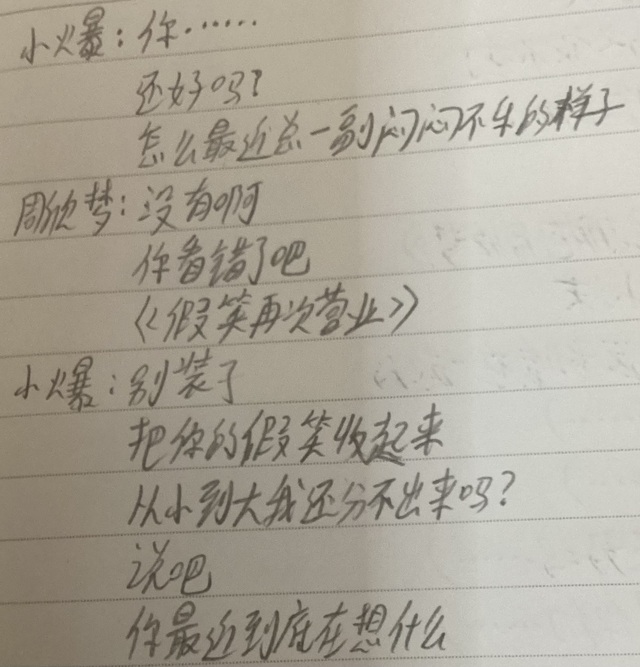 小火暴：你……
还好吗？
怎么最近总一副闷闷不乐的样子
周欣梦：没有啊
你看错了吧
《假笑再次营业》
小火暴：别装了
把你的假笑收起来
从小到大我还分不出来吗？
说吧
你最近到底在想什么